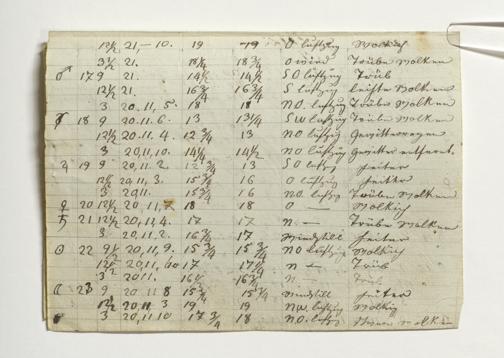 12½ 21,—10. 19 19 O luftzug Wolkich
3½ 21. 18¼ 18¾ O wind Trübe Wolken
♂ 17 9 21. 14½ 14½ SO luftzug Trüb
12½ 21. 16¾ 16¾ S luftzug leichte Wolken
3 20.11.5. 18 18 NO. luftzug Trübe Wolken
☿ 18 9 20.11.6. 13 13¼ SW luftzug Trübe Wolken
12½ 20.11.4. 12¾ 13 NO luftzug Gewitterregen
3 20,11,10. 14¼ 14½ NO. luftzug Gewitter entfernt.
♃ 19 9 20.11.2. 12¾ 13 SO luftzug heiter
12½ 20,11,3. 15¾ 16 O luftzug heiter
3 20,11. 15¾ 16 NO. luftzug Trübe Wolken
♀ 20 12½ 20,11,7. 18 18 O — Wolkich
♄ 21 12½ 20,11,4. 17 17 N — Trübe Wolken
3 20.11.2. 16¾ 17 Windstill heiter
☉ 22 9½ 20,11,9. 15¾ 15¾ NO luftzug Wolkich
12½ 20,11,10 17 17¼ N — Trüb
3½ 20,11. 16½ 16¾ N Trüb
☾ 23 9 20,11 8 15¾ 15¾ Windstill heiter
12½ 20,11 3 19 19 NW. luftzug Wolkig
3 20,11 10 17¾ 18 NO. luftzug Wolken